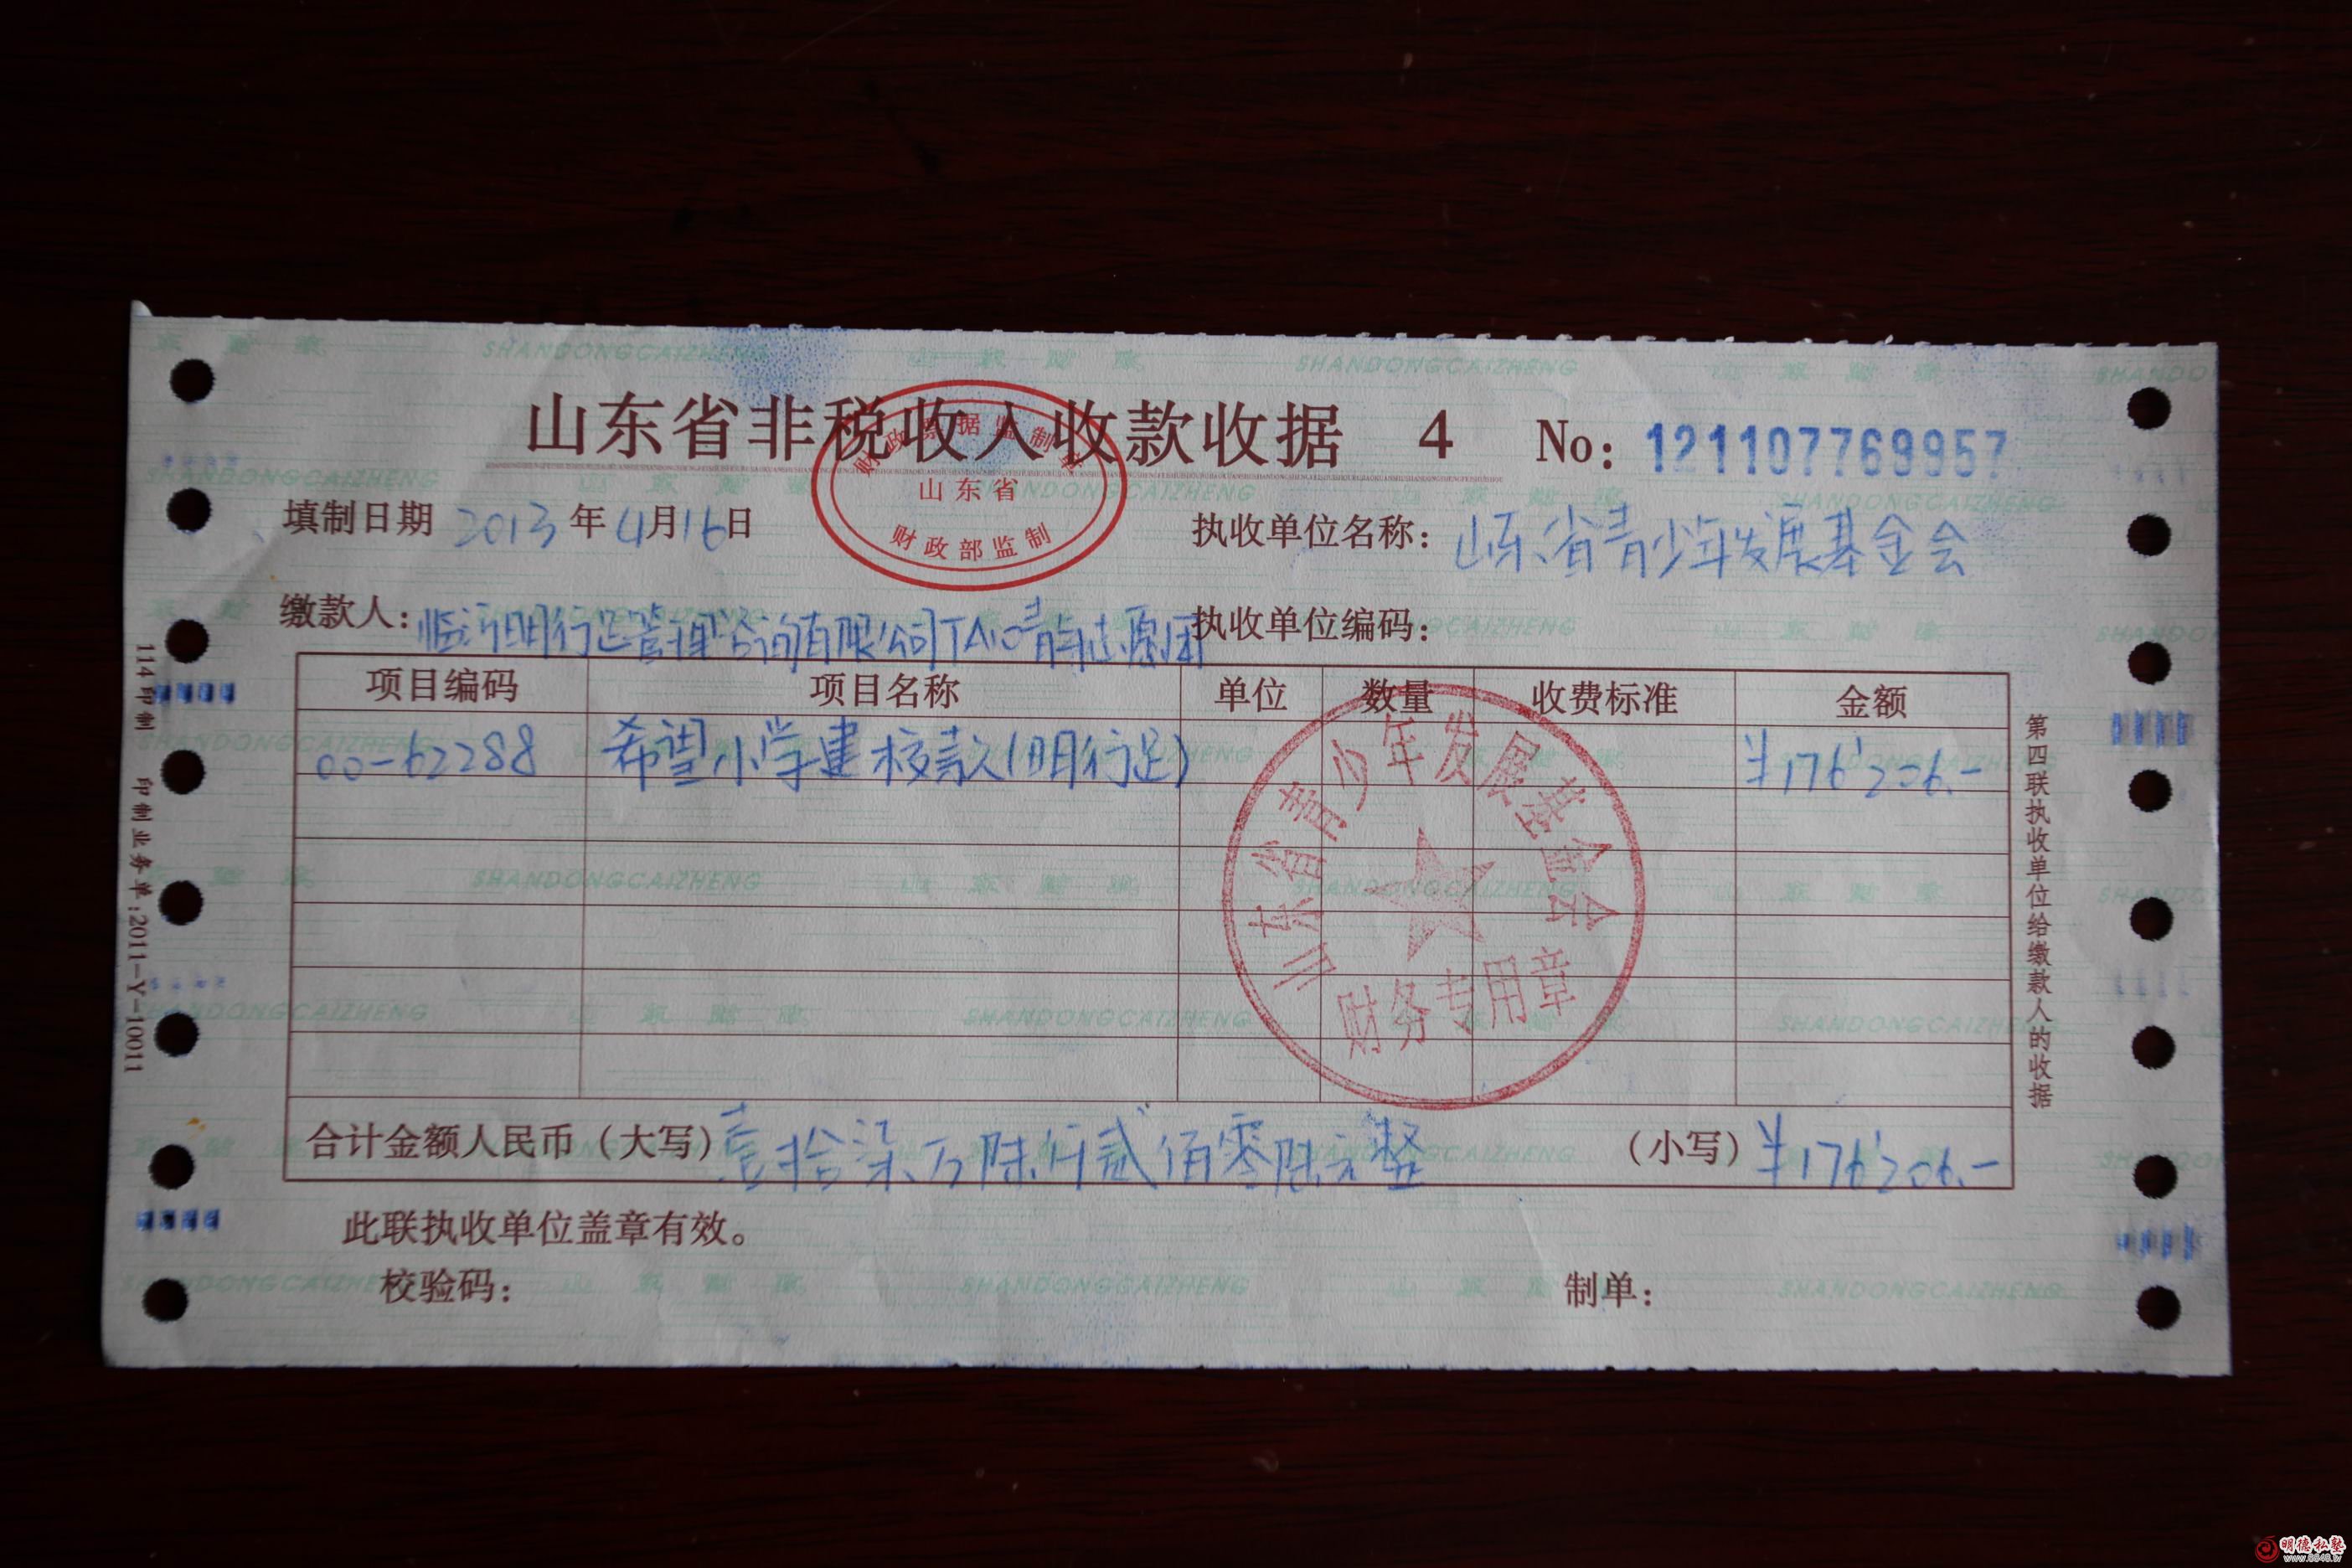 山东省非税收入收款收据 4 No: 121107769957
财政票据监制章
山东省
财政部监制
填制日期 2013年4月16日 执收单位名称: 山东省青少年发展基金会
缴款人: 临沂明行足管理咨询有限公司TAIO青年志愿团 执收单位编码:
项目编码 项目名称 单位 数量 收费标准 金额
00-62288 希望小学建校款(明行足) ¥176'206.-
山东省青少年发展基金会
财务专用章
合计金额人民币(大写) 壹拾柒万陆仟贰佰零陆元整 (小写) ¥176'206.-
此联执收单位盖章有效。
校验码: 制单:
114印制 印制业务单:2011-Y-10011
第四联执收单位给缴款人的收据
SHANDONGCAIZHENG
明德私塾